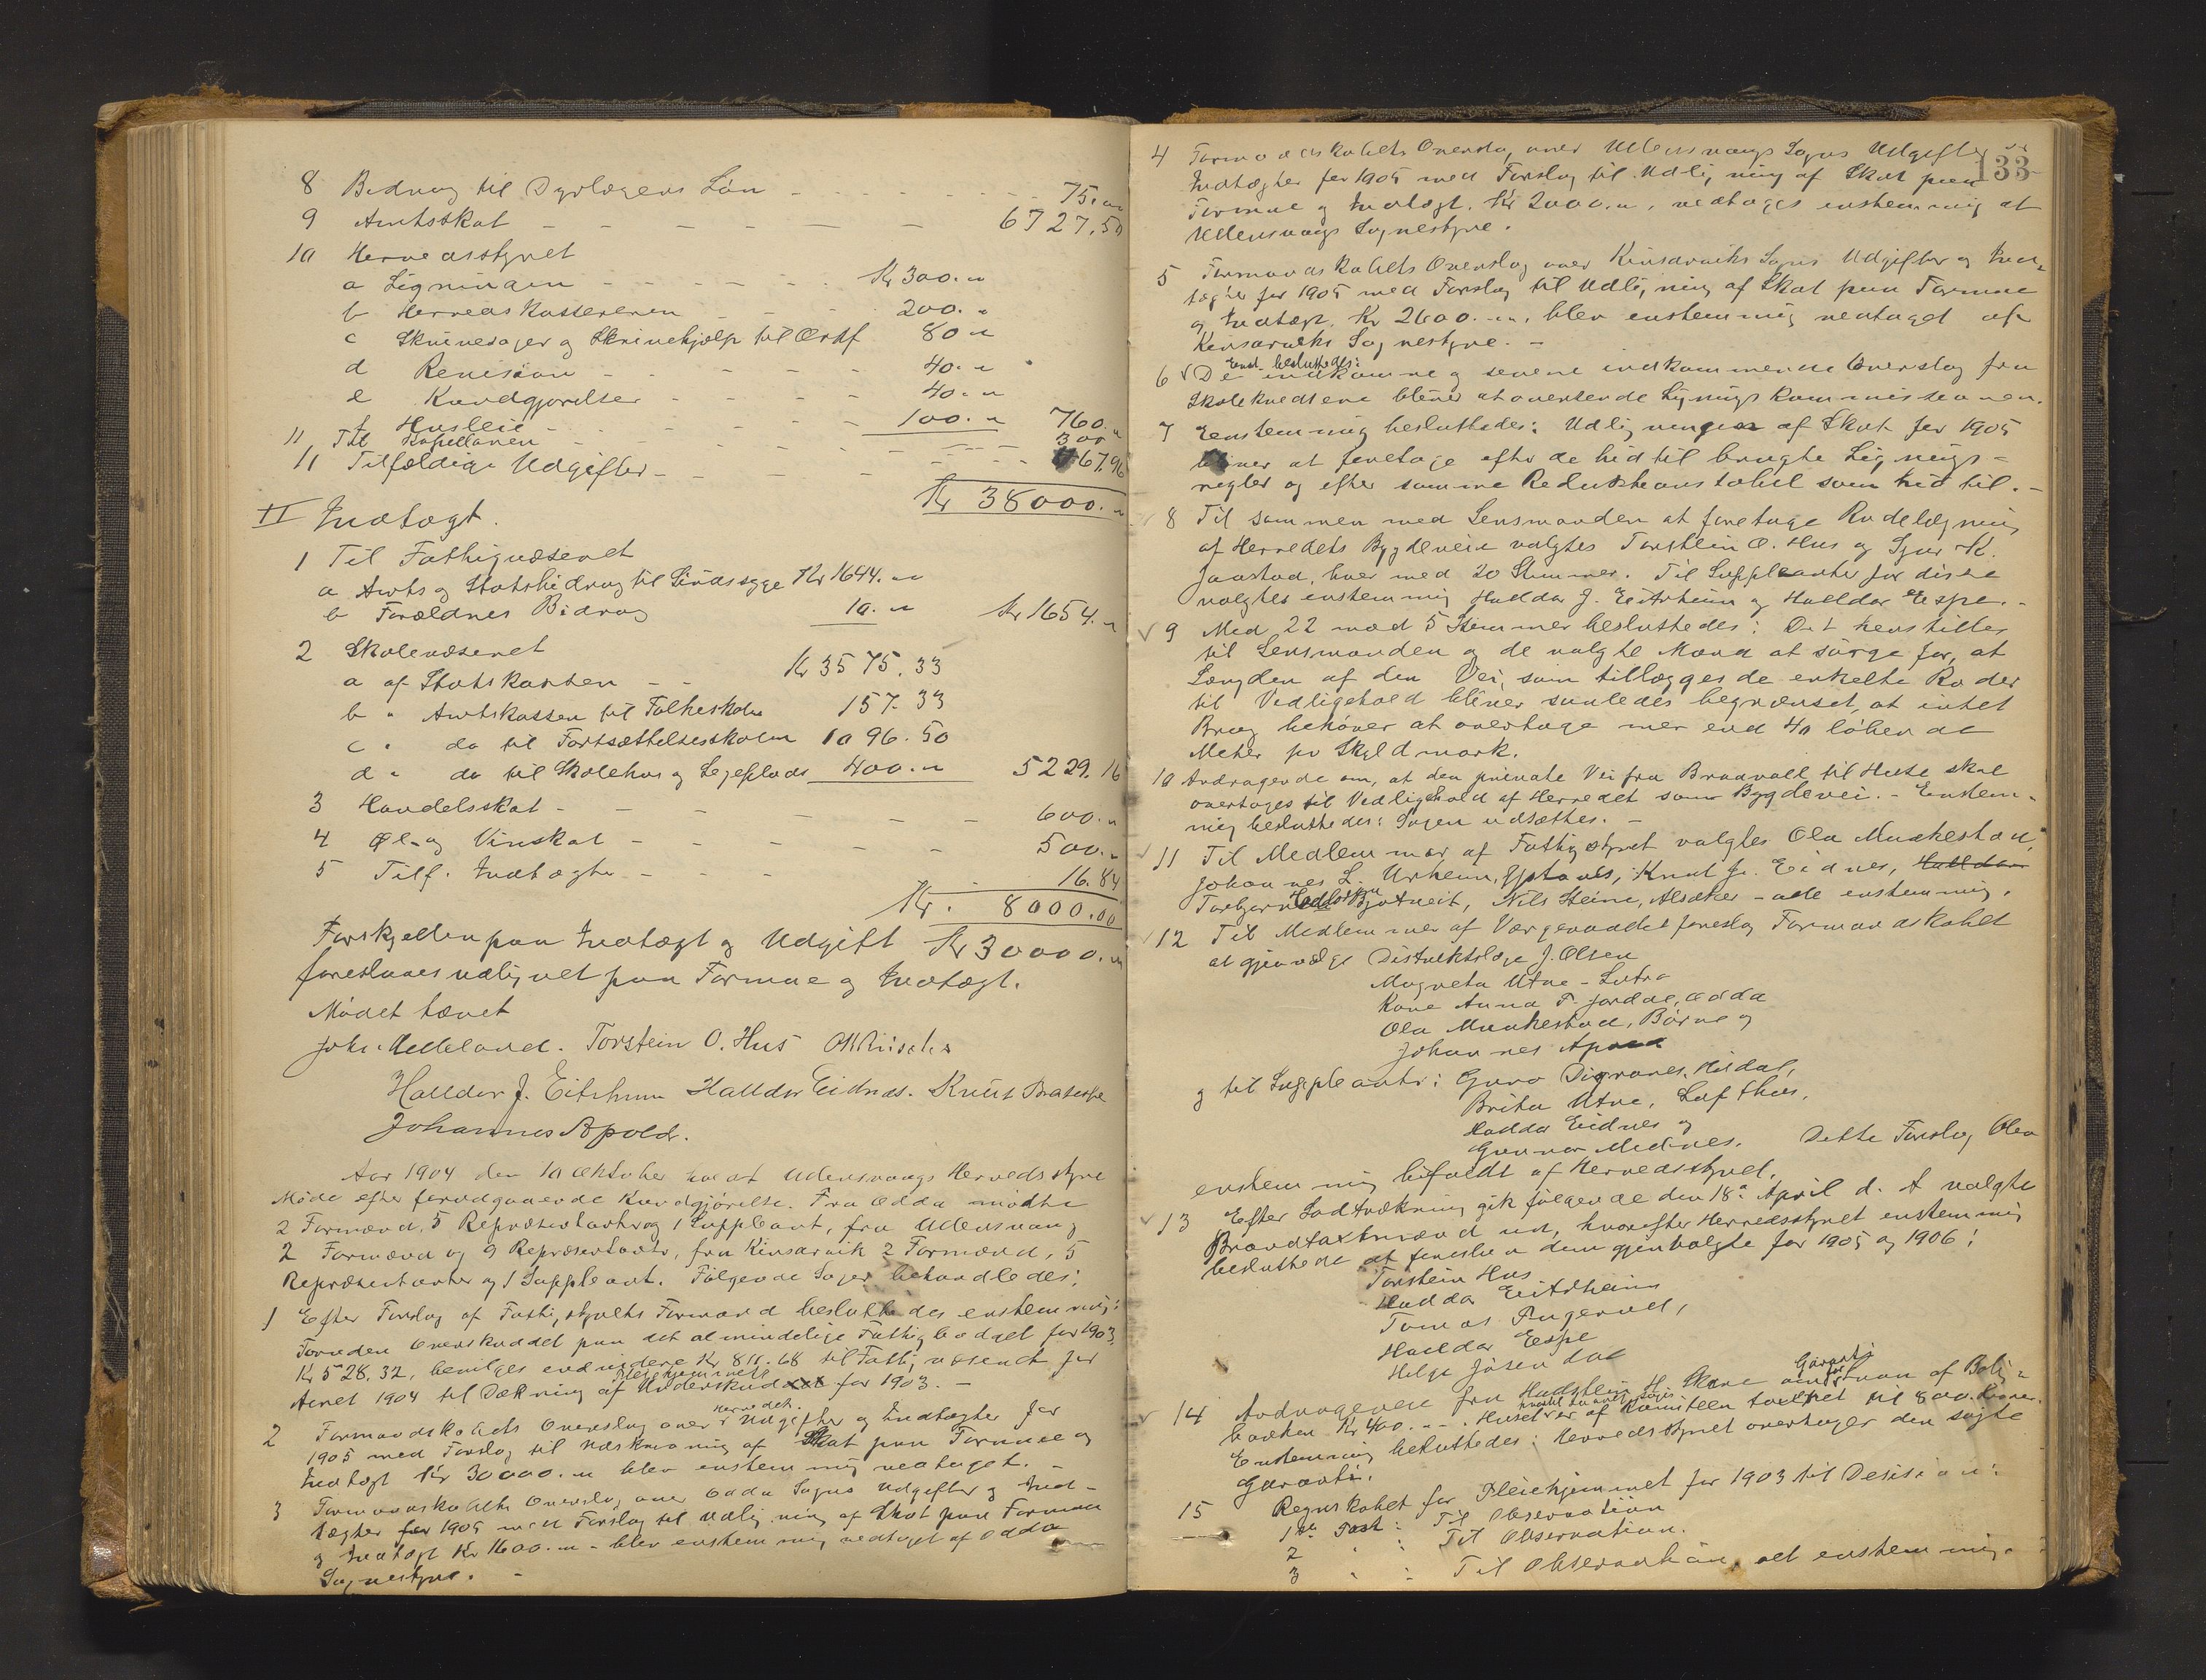 8 Bidrag til Dyrlægens Løn - - - 75.00
9 Amtsskat - - - - - - 6727,50
10 Herredsstyret
a Ligningen - - - - - Kr 300.00
b Herredskassereren - - 200. "
c Skrivesager og Skrivehjælp til Ordf 80 "
d Revision - - - - 40. "
e Kundgjørelser - - - - 40. "
f Husleie - - - - 100. " 760. "
11 Til Kapellanen - - - 300
11 Tilfældige Udgifter - - - 67.96
Kr 38000. "
II Indtægt.
1 Til Fattigvæsenet
a Amts og Statsbidrag til Sindssyge Kr 1644. "
b Forældres Bidrag 10. " Kr 1654. "
2 Skolevæsenet
a af Statskassen - - Kr 3575.33
b " Amtskassen til Folkeskolen 157.33
c " do til Fortsættelsesskolen 1096.50
d " do til Skolehus og Legeplads 400. " 5229.16
3 Handelsskat - - - - - 600. "
4 Øl- og Vinskat - - - - 500. "
5 Tilf. Indtægter - - - 16.84
Kr. 8000.00
Forskjellen paa Indtægt og Udgift Kr 30000. "
foreslaaes udlignet paa Formue og Indtægt.
Mødet hævet
Torstein O. Hus
Halldor J. Eitrheim Halldor Eidnes. Knut
Johannes Apold.
Aar 1904 den 10 Oktober holdt Ullensvangs Herredsstyre
Møde efter forudgaaende Kundgjørelse. Fra Odda mødte
2 Formænd, 5 Repræsentanter og 1 Suppleant, fra Ullensvang
2 Formænd og 9 Repræsentanter, fra Kinsarvik 2 Formænd, 5
Repræsentanter og 1 Suppleant. Følgende Sager behandledes:
1 Efter Forslag af Fattigstyrets Formand besluttedes enstemmig:
Foruden Overskuddet paa det almindelige Fattigbudget for 1903
Kr 528.32, bevilges endvidere Kr 811.68 til Fattigvæsenet for
Aaret 1904 til Dækning af Pleiehjemmets Underskud for 1903. -
2 Formandskabets Overslag over Herredets Udgifter og Indtægter for
1905 med Forslag til Udskrivning af Skat paa Formue og
Indtægt Kr 30000. " blev enstemmig vedtaget. -
3 Formandskabets Overslag over Odda Sogns Udgifter og Ind-
tægter for 1905 med Forslag til Udligning af Skat paa Formue
og Indtægt Kr 1600. " - blev enstemmig vedtaget af Odda
Sognestyre. -
133
4 Formandskabets Overslag over Ullensvangs Sogns Udgifter og
Indtægter for 1905 med Forslag til Udligning af Skat paa
Formue og Indtægt. Kr 2000. ", vedtoges enstemmig af
Ullensvangs Sognestyre.
5 Formandskabets Overslag over Kinsarviks Sogns Udgifter og Ind-
tægter for 1905 med Forslag til Udligning af Skat paa Formue
og Indtægt. Kr 2600. ". blev enstemmig vedtaget af
Kinsarviks Sognestyre. -
Enst. besluttedes:
6 De indkomne og senere indkommende Overslag fra
Skolekredsene bliver at oversende Ligningskommissionen.
7 Eenstemmig besluttedes: Udligningen af Skat for 1905
bliver at foretage efter de hidtil brugte Lignings-
regler og efter samme Reduktionstabel som hidtil. -
8 Til sammen med Lensmanden at foretage Rodelægning
af Herredets Bygdeveie valgtes Torstein O. Hus og Sjur K.
Jaastad, hver med 20 Stemmer. Til Suppleanter for disse
valgtes enstemmig Halldor J. Eitrheim og Halldor Espe. -
9 Med 22 mod 5 Stemmer besluttedes: Det henstilles
til Lensmanden og de valgte Mænd at sørge for, at
Længden af den Vei, som tillægges de enkelte Roder
til Vedligehold bliver saaledes begrænset, at intet
Brug behøver at overtage mer end 40 løbende
Meter pr Skyldmark.
10 Andragende om, at den private Vei fra Braavoll til Huse skal
overtages til Vedligehold af Herredet som Bygdevei. - Enstem-
mig besluttedes: Sagen udsættes. -
11 Til Medlemmer af Fattigstyret valgtes Ola Munkestad,
Johannes L. Urheim, Knut Jr. Eidnes, Halldor
Torbjørn Bjotveit, Nils Heine, Alsaker - alle enstemmig.
12 Til Medlemmer af Værgeraadet foreslog Formandskabet
at gjenvælge Distriktslæge J. Olsen
Magreta Utne - Lutro
Kone Anna T. Jordal, Odda
Ola Munkestad, Børve og
Johannes Apold
og til Suppleanter: Guro Digranes, Hisdal,
Brita Utne, Lofthus,
Haldor Eidnes og
Gunnar Mednes. Dette Forslag blev
enstemmig bifaldt af Herredsstyret.
13 Efter Lodtrækning gik følgende den 18de April d. A valgte
Brandtaxtmænd ud, hvorefter Herredsstyret enstemmig
besluttede at foreslaa dem gjenvalgte for 1905 og 1906:
Torstein Hus
Haldor Eitrheim
Tomas
Haldor Espe
Helge Jøsendal
14 Andragende fra Hadstein H. om Garanti for Laan af Bolig-
banken Kr 400. - Huset er af Komiteen taxeret til 800 Kroner.
Enstemmig besluttedes: Herredsstyret overtager den søgte
Garanti.
15 Regnskabet for Pleiehjemmet for 1903 til Desision:
1ste Post: Til Observation
2 " : Til Observation.
3 " : Til Observation, alt enstemmig.